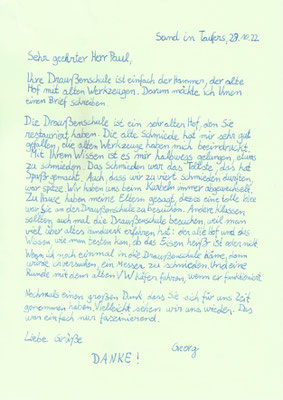 Sand in Taufers, 29.10.22
Sehr geehrter Herr Paul,
Ihre Draußenschule ist einfach der Hammer, der alte
Hof mit alten Werkzeugen. Darum möchte ich Ihnen
einen Brief schreiben.
Die Draußenschule ist ein sehr alter Hof, den Sie
restauriert haben. Die alte Schmiede hat mir sehr gut
gefallen, die alten Werkzeuge haben mich beeindruckt.
Mit Ihrem Wissen ist es mir halbwegs gelungen, etwas
zu schmieden. Das Schmieden war das Tollste, das hat
Spaß gemacht. Auch, dass wir zu viert schmieden durften
war spitze. Wir haben uns beim Kurbeln immer abgewechselt.
Zu Hause haben meine Eltern gesagt, dass es eine tolle Idee
war Sie in der Draußenschule zu besuchen. Andere Klassen
sollten auch mal die Draußenschule besuchen, weil man
viel über altes Handwerk erfahren hat: der alte Hof und das
Wissen wie man testen kann, ob das Eisen heiß ist oder nicht.
Wenn ich noch einmal in die Draußenschule käme, dann
würde ich versuchen, ein Messer zu schmieden. Und eine
Runde mit dem alten VW Käfer fahren, wenn er funktioniert.
Nochmals einen großen Dank, dass Sie sich für uns Zeit
genommen haben. Vielleicht sehen wir uns wieder. Das
war einfach nur faszinierend.
Liebe Grüße
Georg
DANKE!